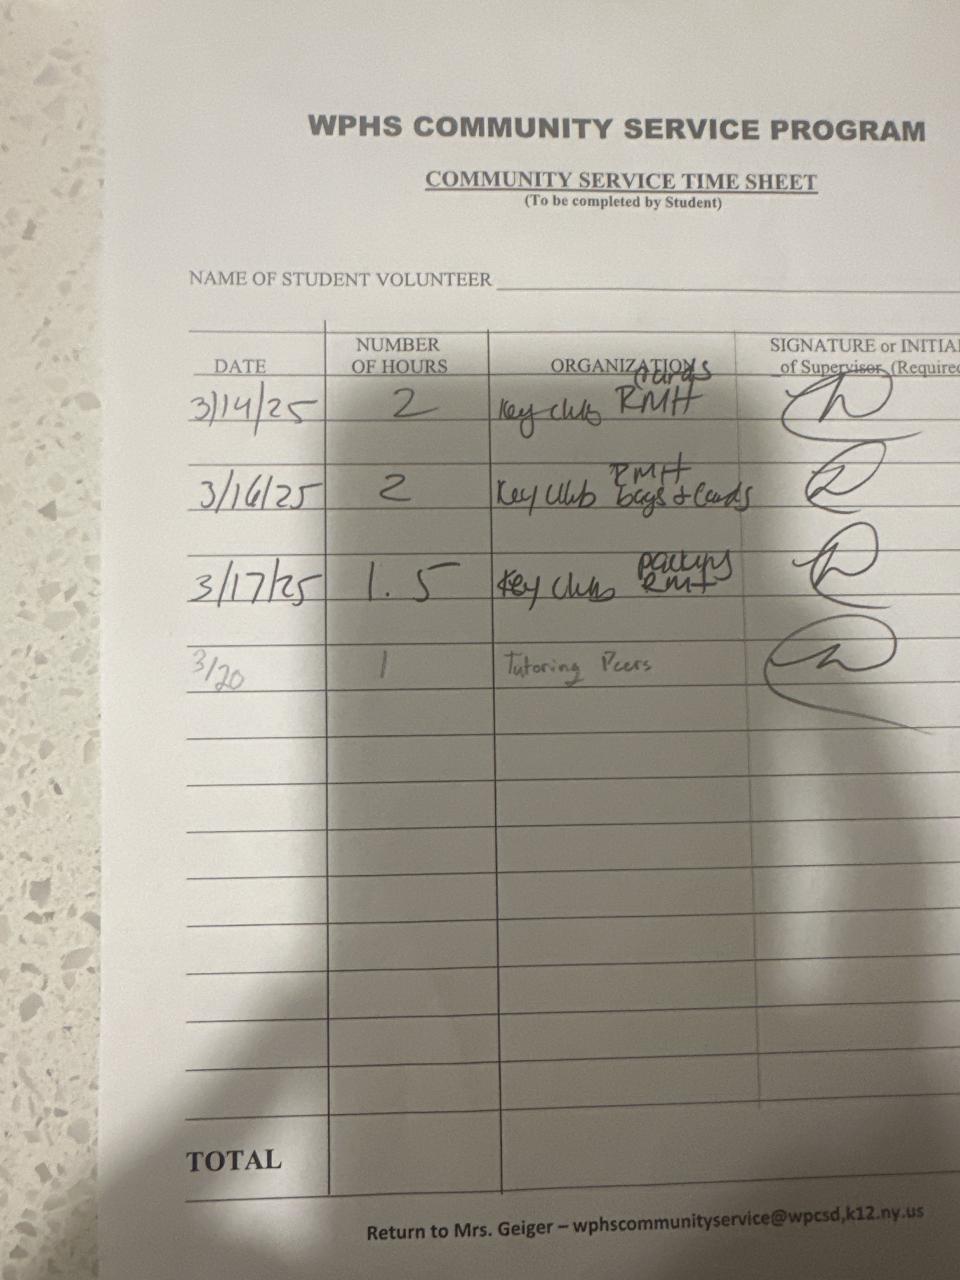 WPHS COMMUNITY SERVICE PROGRAM
COMMUNITY SERVICE TIME SHEET
(To be completed by Student)
NAME OF STUDENT VOLUNTEER
DATE NUMBER OF HOURS ORGANIZATION SIGNATURE or INITIA
of Supervisor (Require
3/14/25 2 Key club RMH cards
3/16/25 2 Key club RMH bags + cards
3/17/25 1.5 Key club RMH
3/20 1 Tutoring Peers
TOTAL
Return to Mrs. Geiger – wphscommunityservice@wpcsd,k12.ny.us